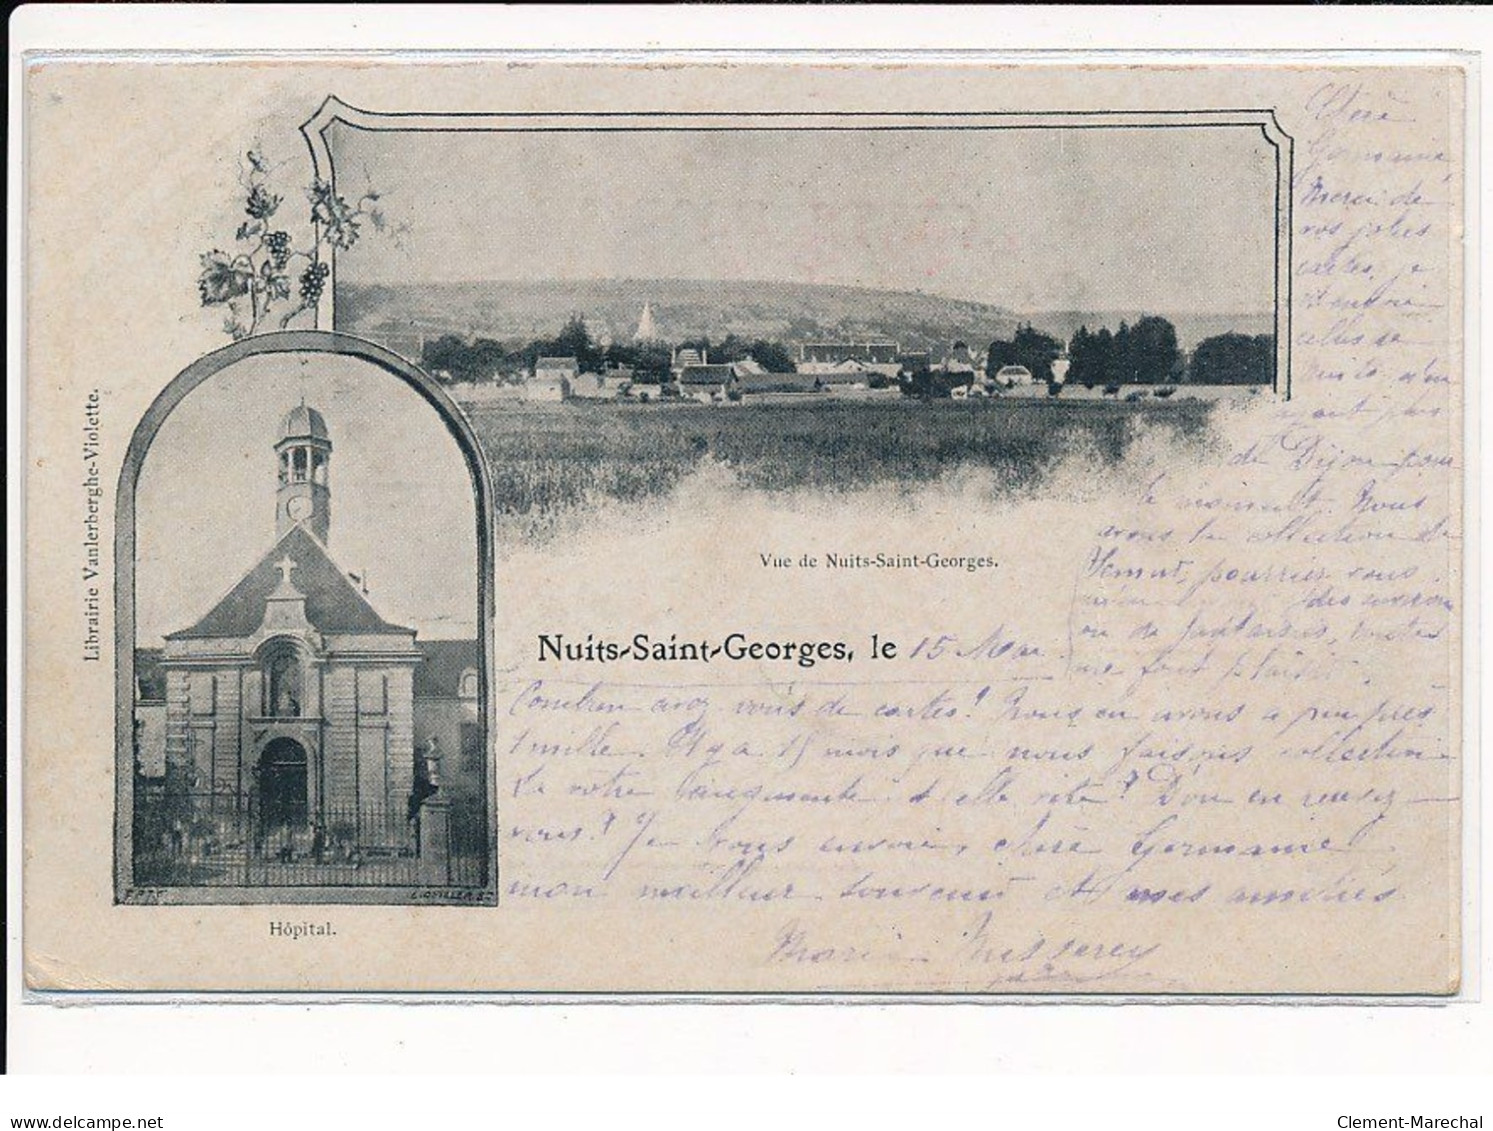 Chère
Germaine
Merci de
vos jolies
cartes, je
celles de
Nuits n'en
ayant plus
de Dijon pour
le moment. Nous
avons la collection de
pourriez vous
des environs
ou de fantaisies, toutes
me font plaisir.
Librairie Vanlerberghe-Violette.
Vue de Nuits-Saint-Georges.
Nuits-Saint-Georges, le 15 Mai
Combien avez vous de cartes? Nous en avons a peu près
1 mille. Il y a 15 mois que nous faisons collection
La votre augmente t elle vite? D'ou en recevez
vous? Je vous envoie, chère Germaine
mon meilleur souvenir et mes amitiés
Marie Misserey
Hôpital.
delcampe.net
Clement-Marechal